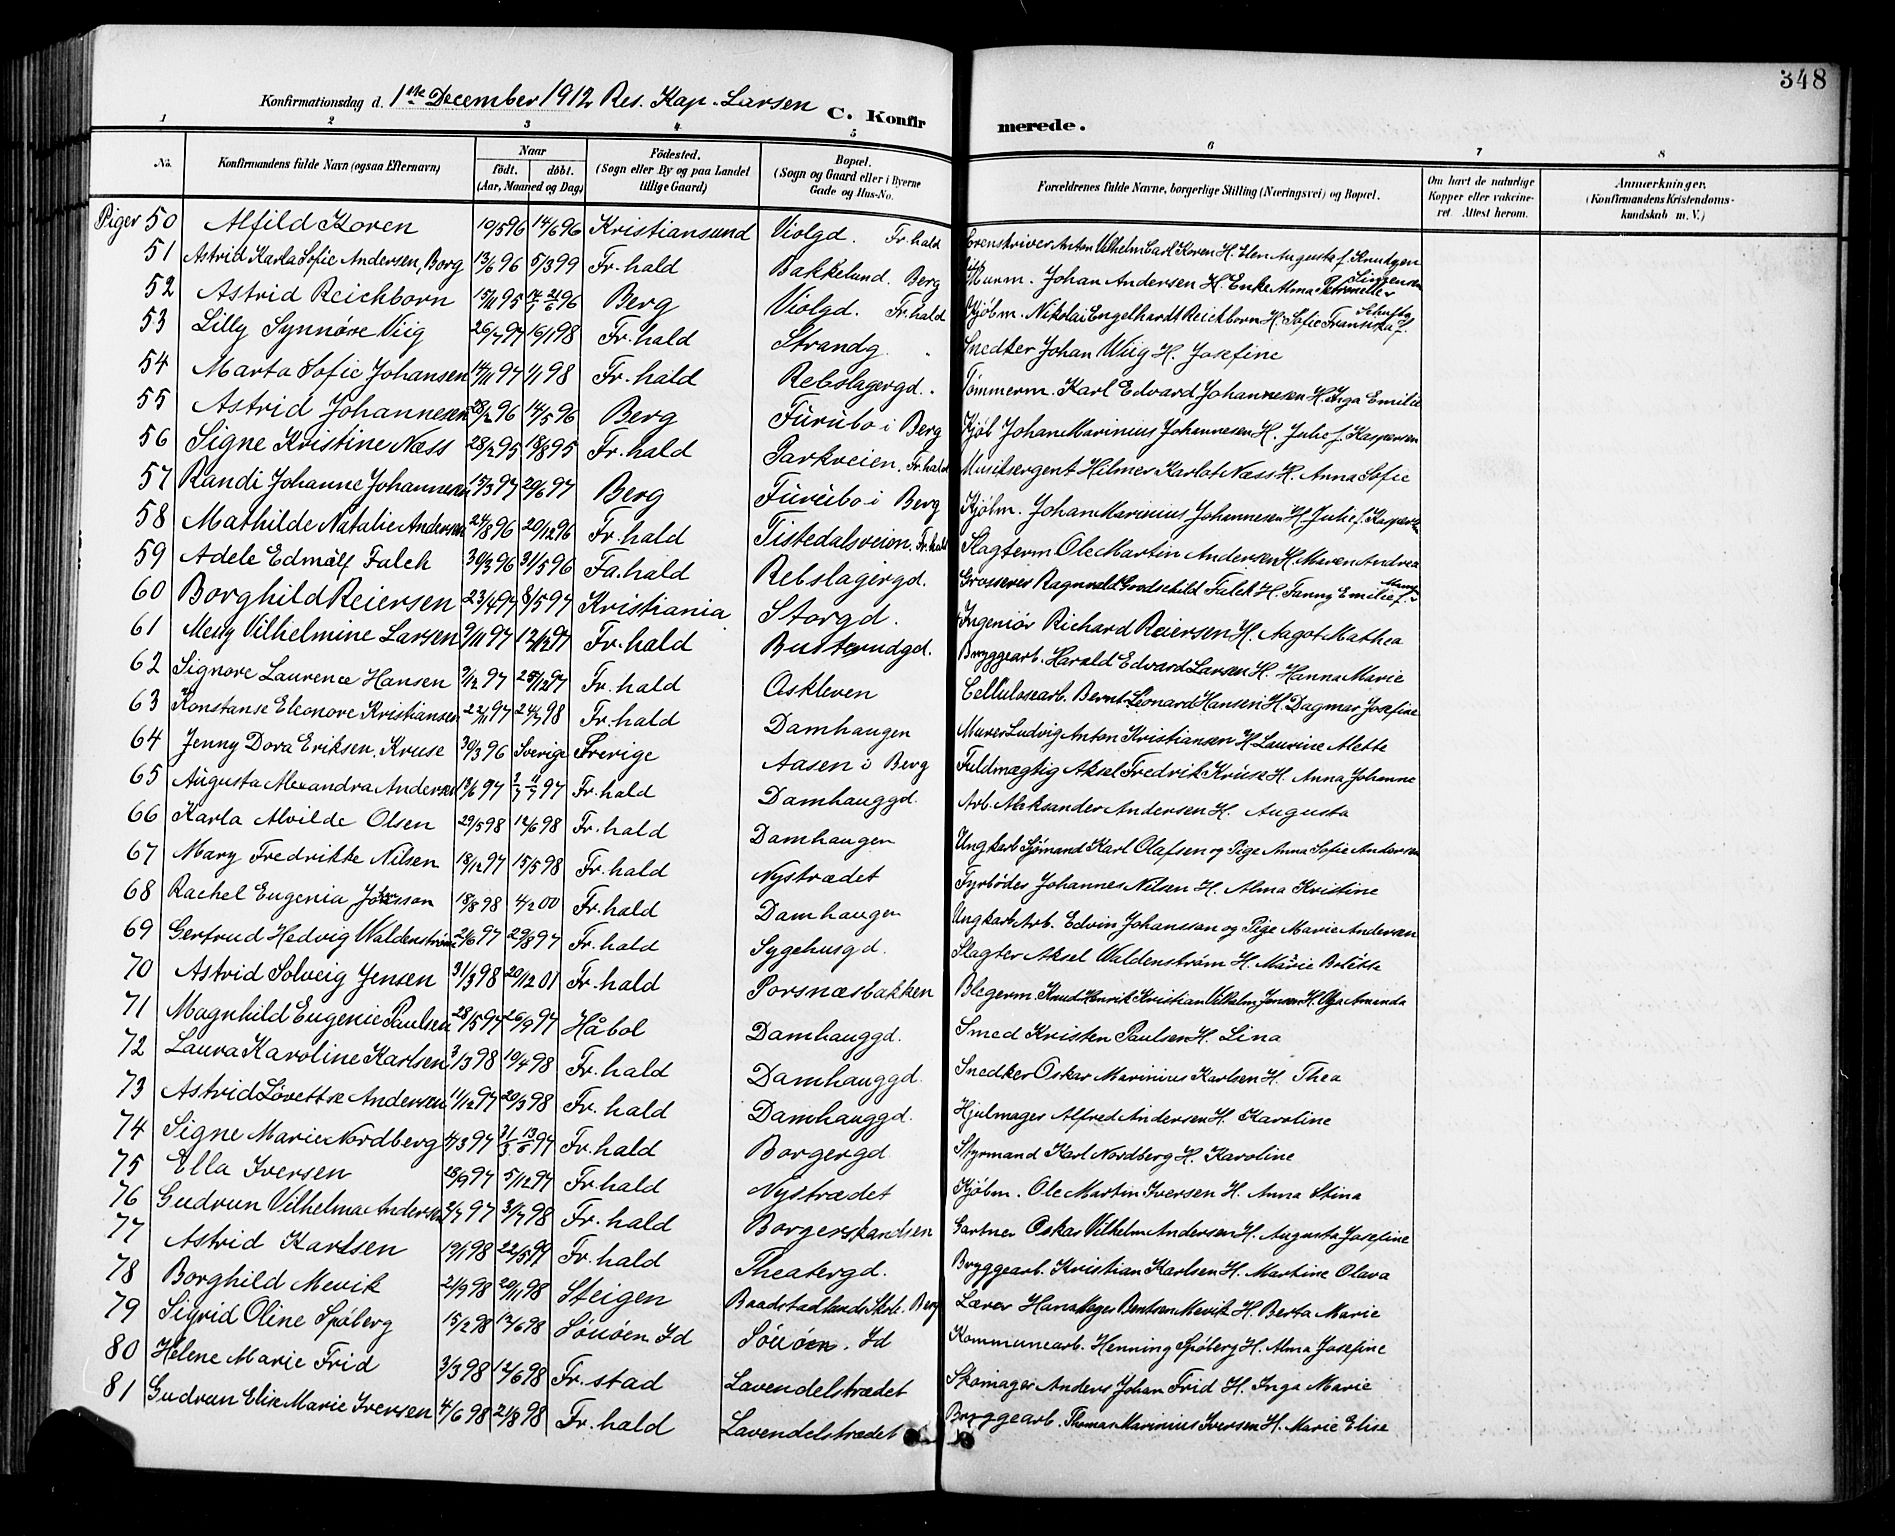 348
Konfirmationsdag d. 1ste December 1912 Res. Kap. Larsen
C. Konfirmerede.
1 2 3 4 5 6 7 8
No. Konfirmandens fulde Navn (ogsaa Efternavn) Naar födt. döbt. (Aar, Maaned og Dag) Födested. (Sogn eller By og paa Landet tillige Gaard) Bopæl. (Sogn og Gaard eller i Byerne Gade og Hus-No. Forældrenes fulde Navne, borgerlige Stilling (Næringsvei) og Bopæl. Om havt de naturlige Kopper eller vakcineret. Attest herom. Anmærkninger. (Konfirmandens Kristendomskundskab m. V.)
Piger 50 Alfild Koren 19/5 96 14/6 96 Kristiansund Violgd. Fr.hald Sorenskriver Anton Vilhelm Carl Koren H. Elen Augusta f. Knutzen
51 Astrid Karla Sofie Andersen, Borg 13/6 96 5/3 99 Fr.hald Bakkelund. Berg Murm. Johan Andersen H. Enke Alma Petronelle
52 Astrid Reichborn 15/11 95 96 Berg Violgd. Fr.hald Kjøbm. Nikolai Engelhardt Reichborn H. Sofie Fransiska f.
53 Lilly Synnøve Viig 26/7 97 16/1 98 Fr.hald Strandg. Snedker Johan Wiig H. Josefine
54 Marta Sofie Johansen 14/11 97 1/1 98 Fr.hald Rebslagergd. Tömmerm. Karl Edvard Johannesen H. Inga Emilie
55 Astrid Johannesen 28/2 96 14/5 96 Berg Furubo i Berg Kjöb. Johan Marinius Johannesen H. Julie f. Kaspersen
56 Signe Kristine Næss 28/2 95 18/8 95 Fr.hald Parkveien. Fr.hald Musiksergent Hilmer Karlot Næss H. Anna Sofie
57 Randi Johanne Johannesen 15/3 97 20/6 97 Berg Furubo i Berg Kjøbm. Johan Marinius Johannesen H. Julie f. Kaspersen
58 Mathilde Natalie Andersen 24/8 96 20/12 96 Fr.hald Tistedalsveien. Fr.hald Slagterm. Ole Martin Andersen H. Maren Andrea
59 Adele Edmølf Falch 30/3 96 31/5 96 Fa.hald Rebslagergd. Grosserer Ragnvald Godschild Falch H. Fanny Emilie f.
60 Borghild Reiersen 23/4 97 8/5 97 Kristiania Storgd. Ingeniör Richard Reiersen H. Aagot Mathea
61 Meliy Vilhelmine Larsen 9/11 97 12/12 97 Fr.hald Busterudgd. Bryggearb. Harald Edvard Larsen H. Hanna Marie
62 Signore Laurence Hansen 9/12 97 25/12 97 Fr.hald Oskleven Cellulosearb. Bernt Leonard Hansen H. Dagmar Josefine
63 Konstanse Eleonore Kristiansen 22/11 97 24/7 98 Fr.hald Damhaugen Murer Ludvig Anton Kristiansen H. Laurine Alette
64 Jenny Dora Eriksen, Kruse 30/3 96 Sverige Sverige Aasen i Berg Fuldmægtig Aksel Fredrik Kruse H. Anna Johanne
65 Augusta Alexandra Andersen 13/6 97 97 Fr.hald Damhauggd. Arb. Aleksander Andersen H. Augusta
66 Karla Alvilde Olsen 29/5 98 12/6 98 Fr.hald Damhaugen Ungkarl Sjömand Karl Olafsen og Pige Anna Sofie Andersen
67 Mary Fredrikke Nilsen 18/12 97 15/5 98 Fr.hald Nystrædet Fyrböder Johannes Nilsen H. Alma Kristine
68 Rachel Eugenia 18/8 98 4/2 00 Fr.hald Damhaugen Ungkarl Arb. Edvin Johansson og Pige Marie Andersen
69 Gertrud Hedvig Waldenström 21/6 97 29/8 97 Fr.hald Sygehusgd. Slagter Aksel Waldenström H. Marie Bolette
70 Astrid Solveig Jensen 31/3 98 20/12 01 Fr.hald Porsnæsbakken Blegerm. Knud Henrik Kristian Vilhelm Jensen H. Olga Amanda
71 Magnhild Eugenie Paulsen 28/5 97 26/9 97 Håbol Damhauggd. Smed Kristen Paulsen H. Lina
72 Laura Karoline Karlsen 3/3 98 10/4 98 Fr.hald Damhauggd. Snedker Oskar Marinius Karlsen H. Thea
73 Astrid Lovettse Andersen 11/12 97 20/3 98 Fr.hald Damhauggd. Hjulmager Alfred Andersen H. Karoline
74 Signe Marie Nordberg 4/3 97 97 Fr.hald Borgergd. Styrmand Karl Nordberg H. Karoline
75 Ella Iversen 25/9 97 5/12 97 Fr.hald Nystrædet Kjøbm. Ole Martin Iversen H. Anna Stina
76 Gudrun Vilhelma Andersen 2/7 97 31/7 98 Fr.hald Borgerskandsen Gartner Oskar Vilhelm Andersen H. Augusta Josefine
77 Astrid Karlsen 19/1 98 22/5 99 Fr.hald Theatergd. Bryggearb. Kristian Karlsen H. Martine Olava
78 Borghild Mevik 21/9 98 20/11 98 Steigen Baadstadlands Skole. Berg Lærer Hans Meyer Bentsen Mevik H. Berta Marie
79 Sigrid Oline Spöberg 15/2 98 12/6 98 Id Id Kommunearb. Henning Spöberg H. Alma Josefine
80 Helene Marie Frid 3/3 98 12/6 98 Fr.stad Lavendelstrædet Skomager Anders Johan Frid H. Inga Marie
81 Gudrun Elise Marie Iversen 4/6 98 21/8 98 Fr.hald Lavendelstrædet Bryggearb. Thomas Marinius Iversen H. Marie Elise